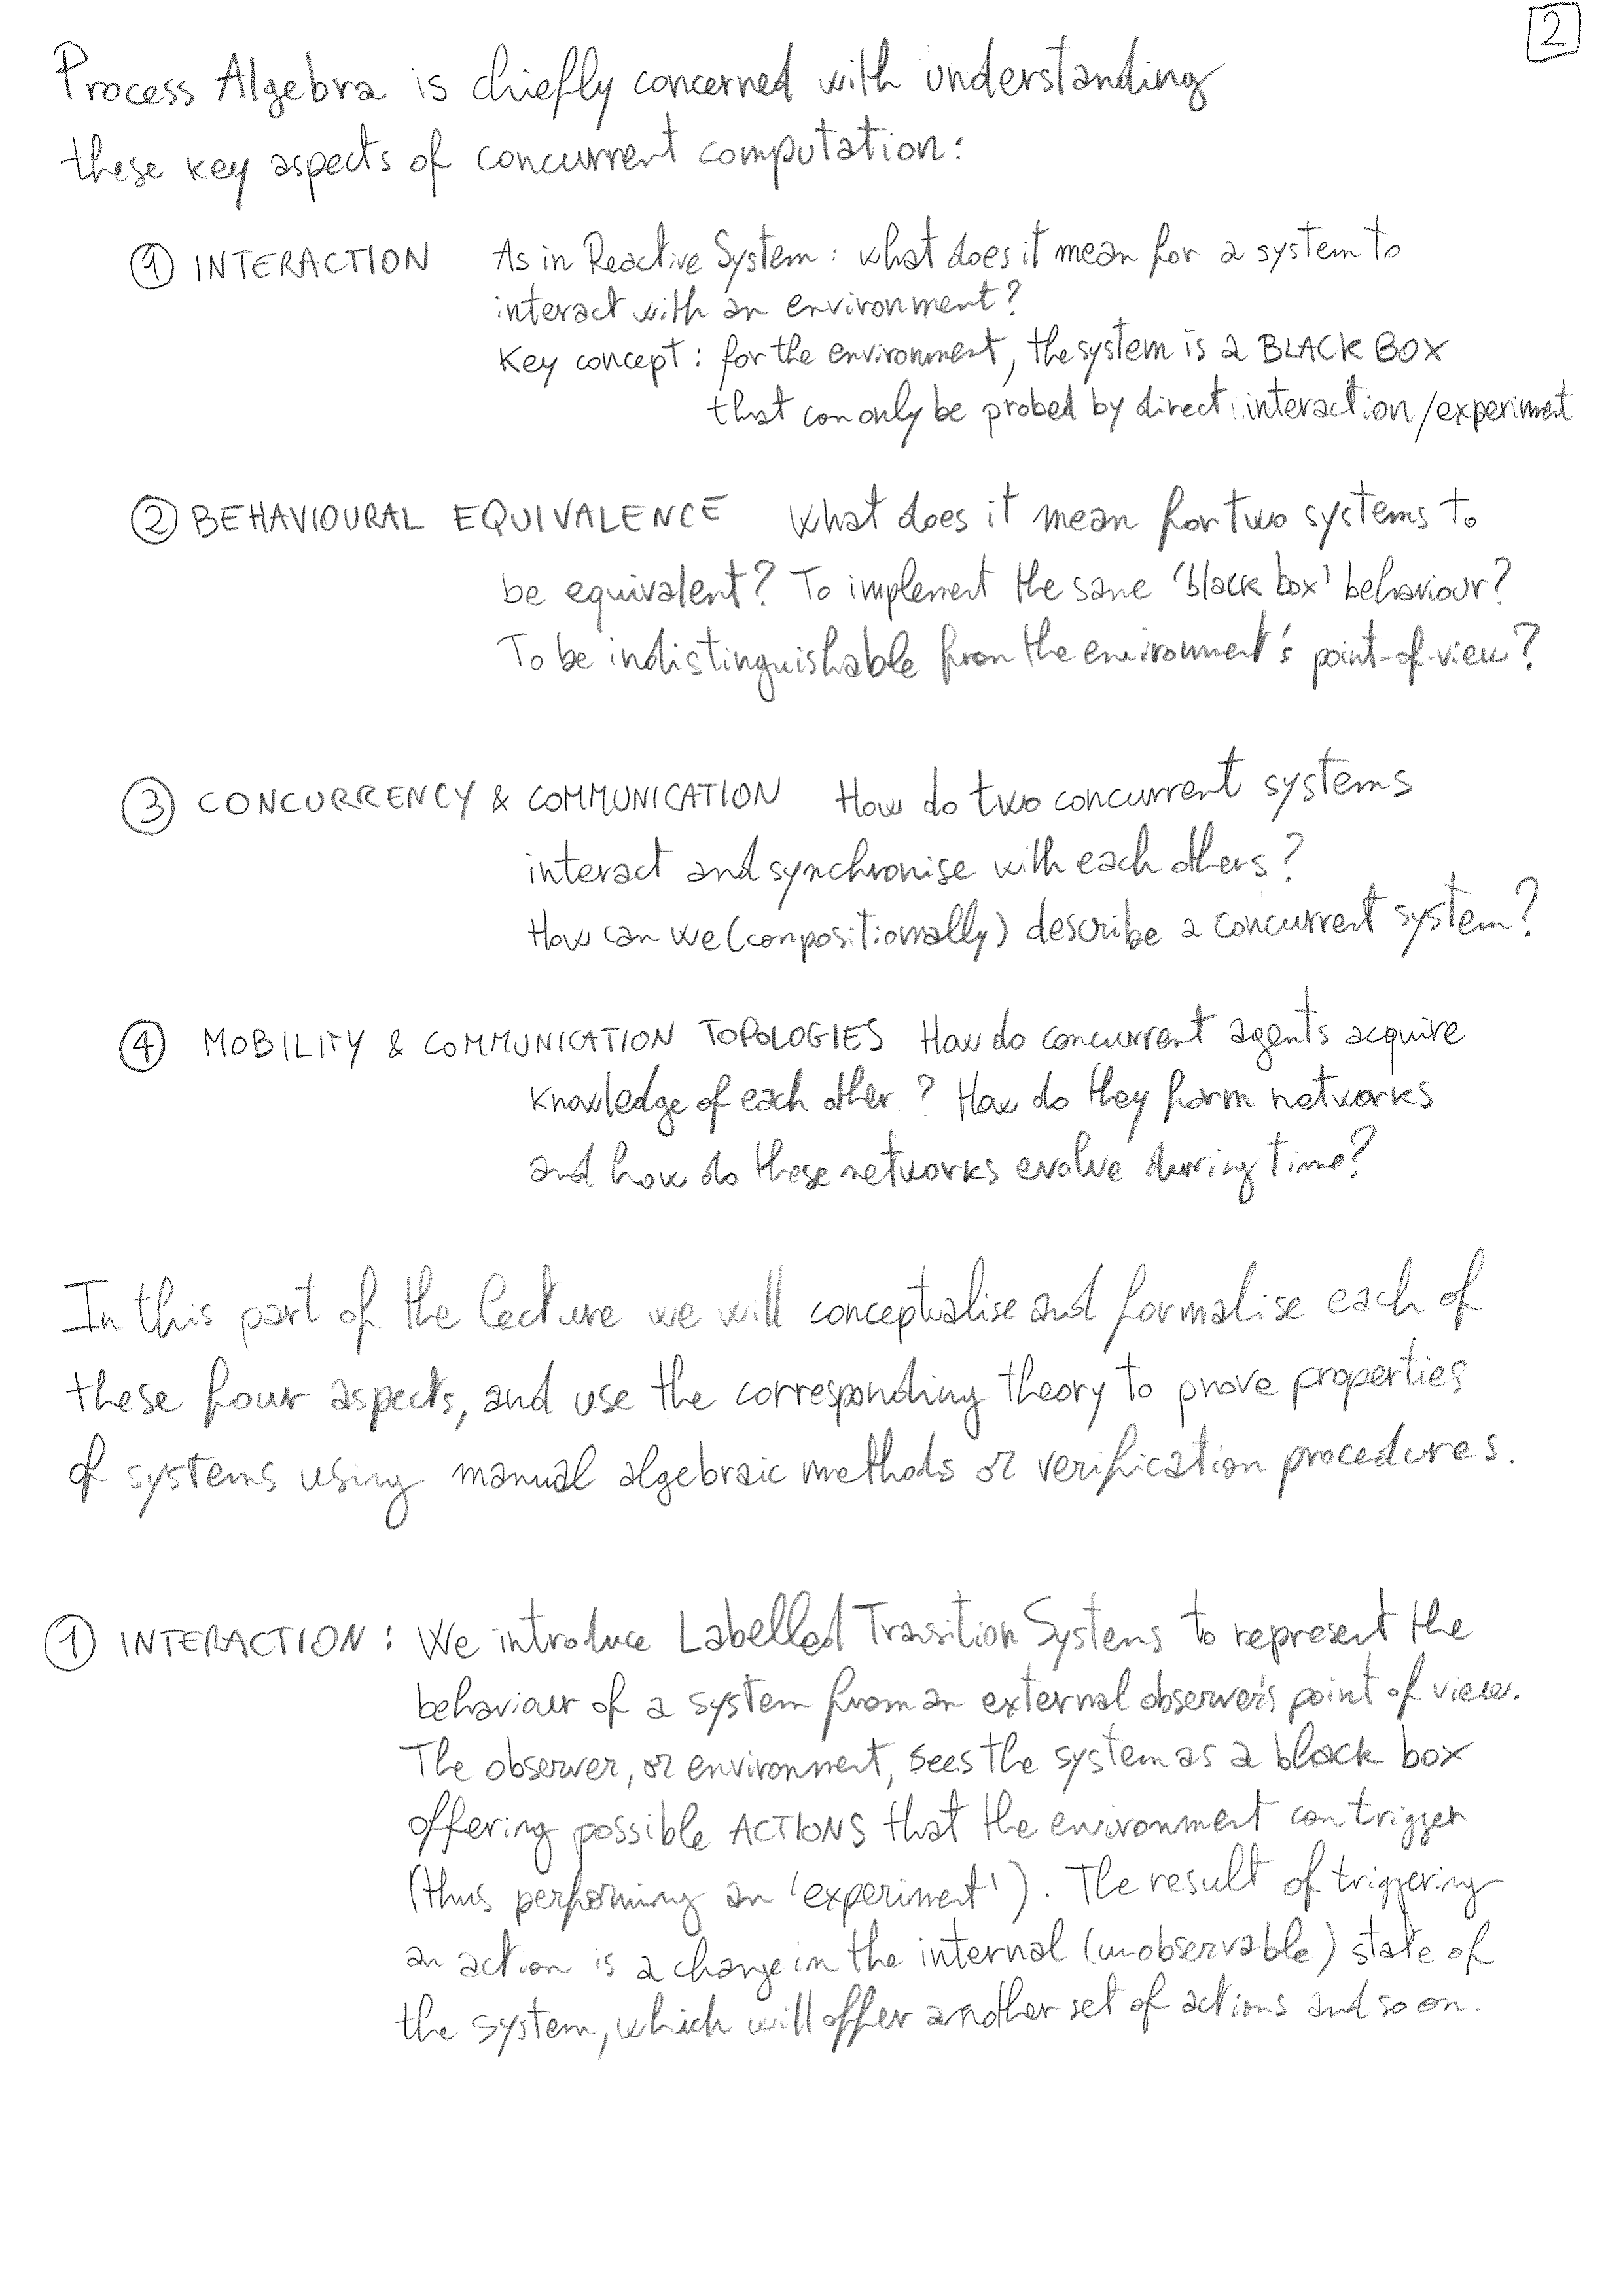 2
Process Algebra is chiefly concerned with understanding
these key aspects of concurrent computation:
① INTERACTION As in Reactive System: what does it mean for a system to
interact with an environment?
Key concept: for the environment, the system is a BLACK BOX
that can only be probed by direct interaction/experiment
② BEHAVIOURAL EQUIVALENCE What does it mean for two systems to
be equivalent? To implement the same 'black box' behaviour?
To be indistinguishable from the environment's point-of-view?
③ CONCURRENCY & COMMUNICATION How do two concurrent systems
interact and synchronise with each others?
How can we (compositionally) describe a concurrent system?
④ MOBILITY & COMMUNICATION TOPOLOGIES How do concurrent agents acquire
knowledge of each other? How do they form networks
and how do these networks evolve during time?
In this part of the lecture we will conceptualise and formalise each of
these four aspects, and use the corresponding theory to prove properties
of systems using manual algebraic methods or verification procedures.
① INTERACTION: We introduce Labelled Transition Systems to represent the
behaviour of a system from an external observer's point of view.
The observer, or environment, sees the system as a black box
offering possible ACTIONS that the environment can trigger
(thus performing an 'experiment'). The result of triggering
an action is a change in the internal (unobservable) state of
the system, which will offer another set of actions and so on.